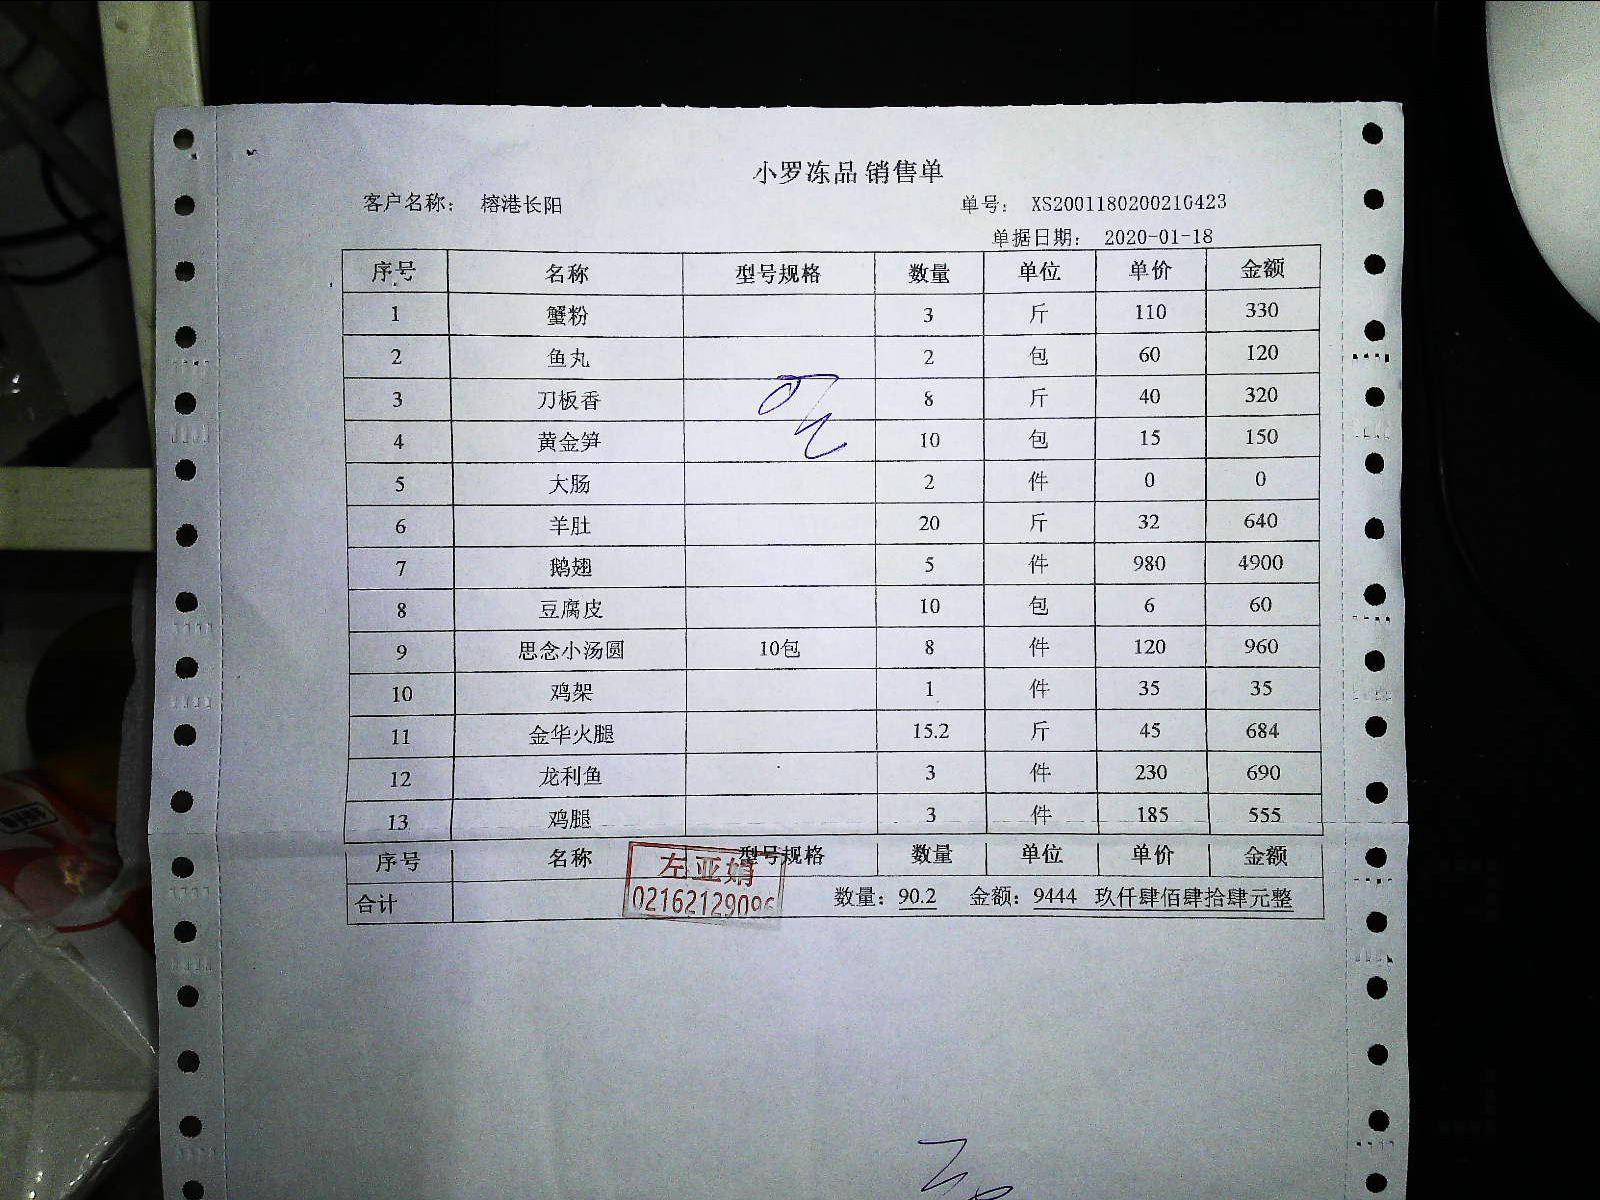 小罗冻品 销售单
客户名称： 榕港长阳 单号： XS2001180200210423
单据日期： 2020-01-18
序号 名称 型号规格 数量 单位 单价 金额
1 蟹粉 3 斤 110 330
2 鱼丸 2 包 60 120
3 刀板香 8 斤 40 320
4 黄金笋 10 包 15 150
5 大肠 2 件 0 0
6 羊肚 20 斤 32 640
7 鹅翅 5 件 980 4900
8 豆腐皮 10 包 6 60
9 思念小汤圆 10包 8 件 120 960
10 鸡架 1 件 35 35
11 金华火腿 15.2 斤 45 684
12 龙利鱼 3 件 230 690
13 鸡腿 3 件 185 555
序号 名称 型号规格 数量 单位 单价 金额
合计 数量：90.2 金额：9444 玖仟肆佰肆拾肆元整
左亚娟
02162129096